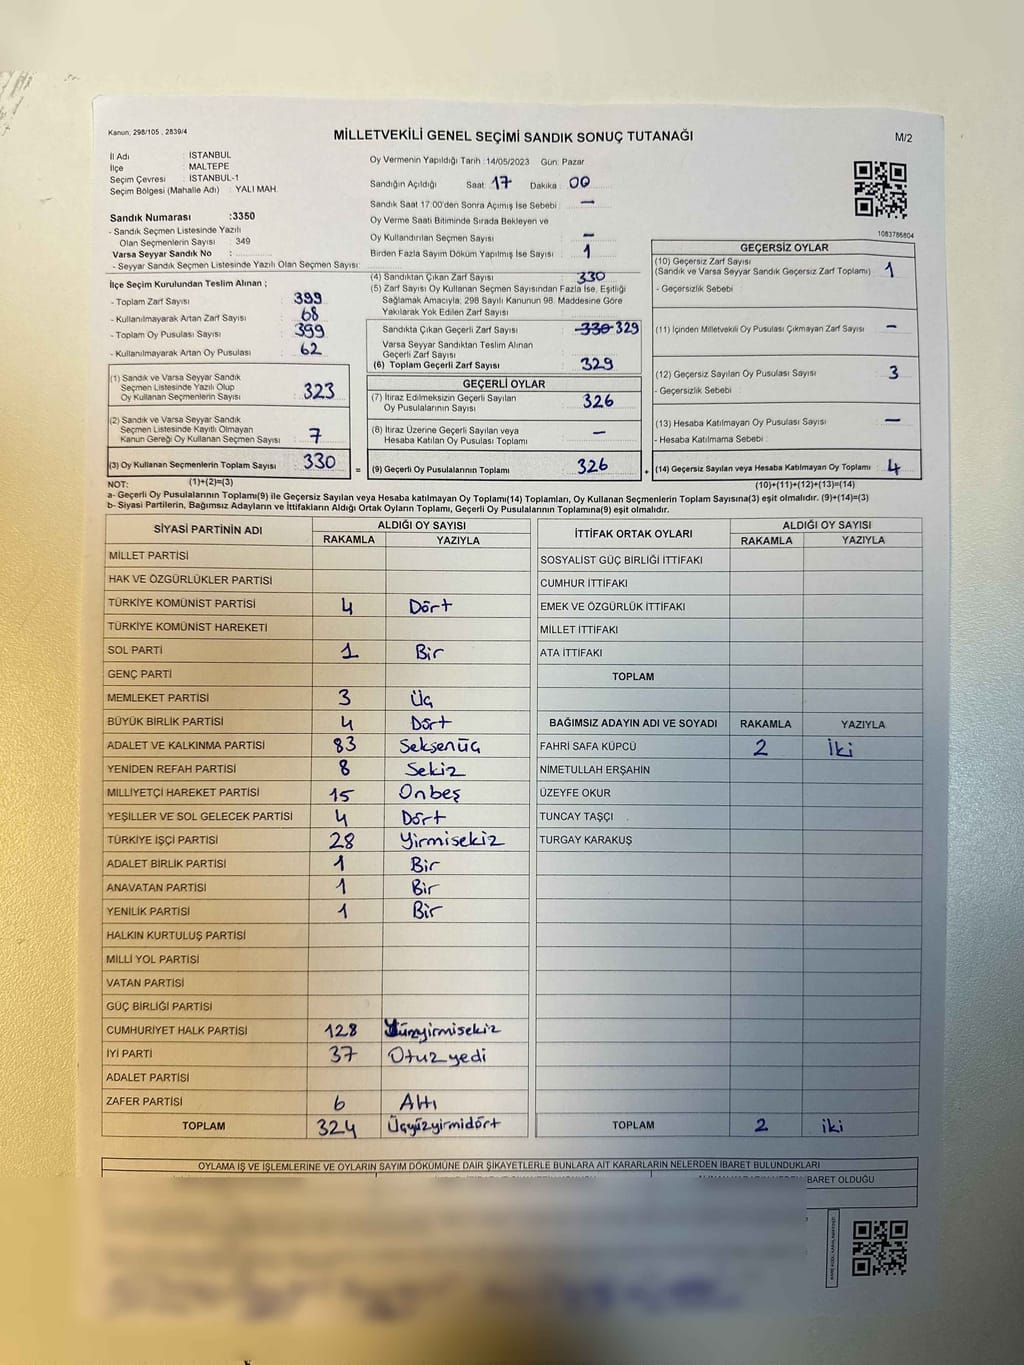 Kanun, 298/105 , 2839/4
MİLLETVEKİLİ GENEL SEÇİMİ SANDIK SONUÇ TUTANAĞI
M/2
İl Adı : İSTANBUL
İlçe : MALTEPE
Seçim Çevresi : İSTANBUL-1
Seçim Bölgesi (Mahalle Adı) : YALI MAH.
Sandık Numarası :3350
- Sandık Seçmen Listesinde Yazılı
Olan Seçmenlerin Sayısı : 349
Varsa Seyyar Sandık No :
- Seyyar Sandık Seçmen Listesinde Yazılı Olan Seçmen Sayısı:
Oy Vermenin Yapıldığı Tarih :14/05/2023 Gün: Pazar
Sandığın Açıldığı Saat: 17 Dakika: 00
Sandık Saat 17:00'den Sonra Açımış İse Sebebi: —
Oy Verme Saati Bitiminde Sırada Bekleyen ve
Oy Kullandırılan Seçmen Sayısı : —
Birden Fazla Sayım Döküm Yapılmış İse Sayısı : 1
1083786804
İlçe Seçim Kurulundan Teslim Alınan ;
- Toplam Zarf Sayısı : 399
- Kullanılmayarak Artan Zarf Sayısı : 68
- Toplam Oy Pusulası Sayısı : 399
- Kullanılmayarak Artan Oy Pusulası : 62
(1) Sandık ve Varsa Seyyar Sandık
Seçmen Listesinde Yazılı Olup
Oy Kullanan Seçmenlerin Sayısı : 323
(2) Sandık ve Varsa Seyyar Sandık
Seçmen Listesinde Kayıtlı Olmayan
Kanun Gereği Oy Kullanan Seçmen Sayısı : 7
(3) Oy Kullanan Seçmenlerin Toplam Sayısı : 330
(4) Sandıktan Çıkan Zarf Sayısı : 330
(5) Zarf Sayısı Oy Kullanan Seçmen Sayısından Fazla İse, Eşitliği
Sağlamak Amacıyla, 298 Sayılı Kanunun 98. Maddesine Göre
Yakılarak Yok Edilen Zarf Sayısı :
Sandıkta Çıkan Geçerli Zarf Sayısı : 330 329
Varsa Seyyar Sandıktan Teslim Alınan
Geçerli Zarf Sayısı
(6) Toplam Geçerli Zarf Sayısı : 329
GEÇERLİ OYLAR
(7) İtiraz Edilmeksizin Geçerli Sayılan
Oy Pusulalarının Sayısı : 326
(8) İtiraz Üzerine Geçerli Sayılan veya
Hesaba Katılan Oy Pusulası Toplamı : —
= (9) Geçerli Oy Pusulalarının Toplamı : 326
GEÇERSİZ OYLAR
(10) Geçersiz Zarf Sayısı
(Sandık ve Varsa Seyyar Sandık Geçersiz Zarf Toplamı) : 1
- Geçersizlik Sebebi :
(11) İçinden Milletvekili Oy Pusulası Çıkmayan Zarf Sayısı : —
(12) Geçersiz Sayılan Oy Pusulası Sayısı : 3
- Geçersizlik Sebebi :
(13) Hesaba Katılmayan Oy Pusulası Sayısı : —
- Hesaba Katılmama Sebebi :
+ (14) Geçersiz Sayılan veya Hesaba Katılmayan Oy Toplamı : 4
NOT: (1)+(2)=(3) (10)+(11)+(12)+(13)=(14)
a- Geçerli Oy Pusulalarının Toplamı(9) ile Geçersiz Sayılan veya Hesaba katılmayan Oy Toplamı(14) Toplamları, Oy Kullanan Seçmenlerin Toplam Sayısına(3) eşit olmalıdır. (9)+(14)=(3)
b- Siyasi Partilerin, Bağımsız Adayların ve İttifakların Aldığı Ortak Oyların Toplamı, Geçerli Oy Pusulalarının Toplamına(9) eşit olmalıdır.
SİYASİ PARTİNİN ADI ALDIĞI OY SAYISI
RAKAMLA YAZIYLA
MİLLET PARTİSİ
HAK VE ÖZGÜRLÜKLER PARTİSİ
TÜRKİYE KOMÜNİST PARTİSİ 4 Dört
TÜRKİYE KOMÜNİST HAREKETİ
SOL PARTİ 1 Bir
GENÇ PARTİ
MEMLEKET PARTİSİ 3 Üç
BÜYÜK BİRLİK PARTİSİ 4 Dört
ADALET VE KALKINMA PARTİSİ 83 Seksenüç
YENİDEN REFAH PARTİSİ 8 Sekiz
MİLLİYETÇİ HAREKET PARTİSİ 15 Onbeş
YEŞİLLER VE SOL GELECEK PARTİSİ 4 Dört
TÜRKİYE İŞÇİ PARTİSİ 28 Yirmisekiz
ADALET BİRLİK PARTİSİ 1 Bir
ANAVATAN PARTİSİ 1 Bir
YENİLİK PARTİSİ 1 Bir
HALKIN KURTULUŞ PARTİSİ
MİLLİ YOL PARTİSİ
VATAN PARTİSİ
GÜÇ BİRLİĞİ PARTİSİ
CUMHURİYET HALK PARTİSİ 128 Yüzyirmisekiz
İYİ PARTİ 37 Otuzyedi
ADALET PARTİSİ
ZAFER PARTİSİ 6 Altı
TOPLAM 324 Üçyüzyirmidört
İTTİFAK ORTAK OYLARI ALDIĞI OY SAYISI
RAKAMLA YAZIYLA
SOSYALİST GÜÇ BİRLİĞİ İTTİFAKI
CUMHUR İTTİFAKI
EMEK VE ÖZGÜRLÜK İTTİFAKI
MİLLET İTTİFAKI
ATA İTTİFAKI
TOPLAM
BAĞIMSIZ ADAYIN ADI VE SOYADI RAKAMLA YAZIYLA
FAHRİ SAFA KÜPCÜ 2 İki
NİMETULLAH ERŞAHİN
ÜZEYFE OKUR
TUNCAY TAŞÇI
TURGAY KARAKUŞ
TOPLAM 2 iki
OYLAMA İŞ VE İŞLEMLERİNE VE OYLARIN SAYIM DÖKÜMÜNE DAİR ŞİKAYETLERLE BUNLARA AİT KARARLARIN NELERDEN İBARET BULUNDUKLARI
İBARET OLDUĞU